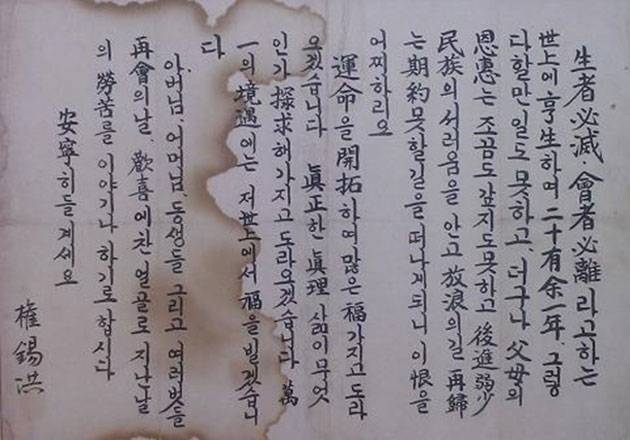 生者必滅·會者必離라고하는
世上에享生하며二十有余一年、그렇
다할만일도못하고더구나父母의
恩惠는조곰도갚지도못하고後進弱少
民族의서러움을안고放浪의길再歸
는期約못할길을떠나게되니이恨을
어찌하리요
運命을開拓하여많은福가지고도라
오겠습니다 眞正한眞理삶이무엇
인가探求해가지고도라오겠습니다萬
一의境遇에는저世上에서福을빌겠습니
다
아버님、어머님、동생들그리고여러벗들
再會의날、歡喜에찬얼골로지난날
의勞苦를이야기나하기로합시다
安寧히들계셔요
權錫洪